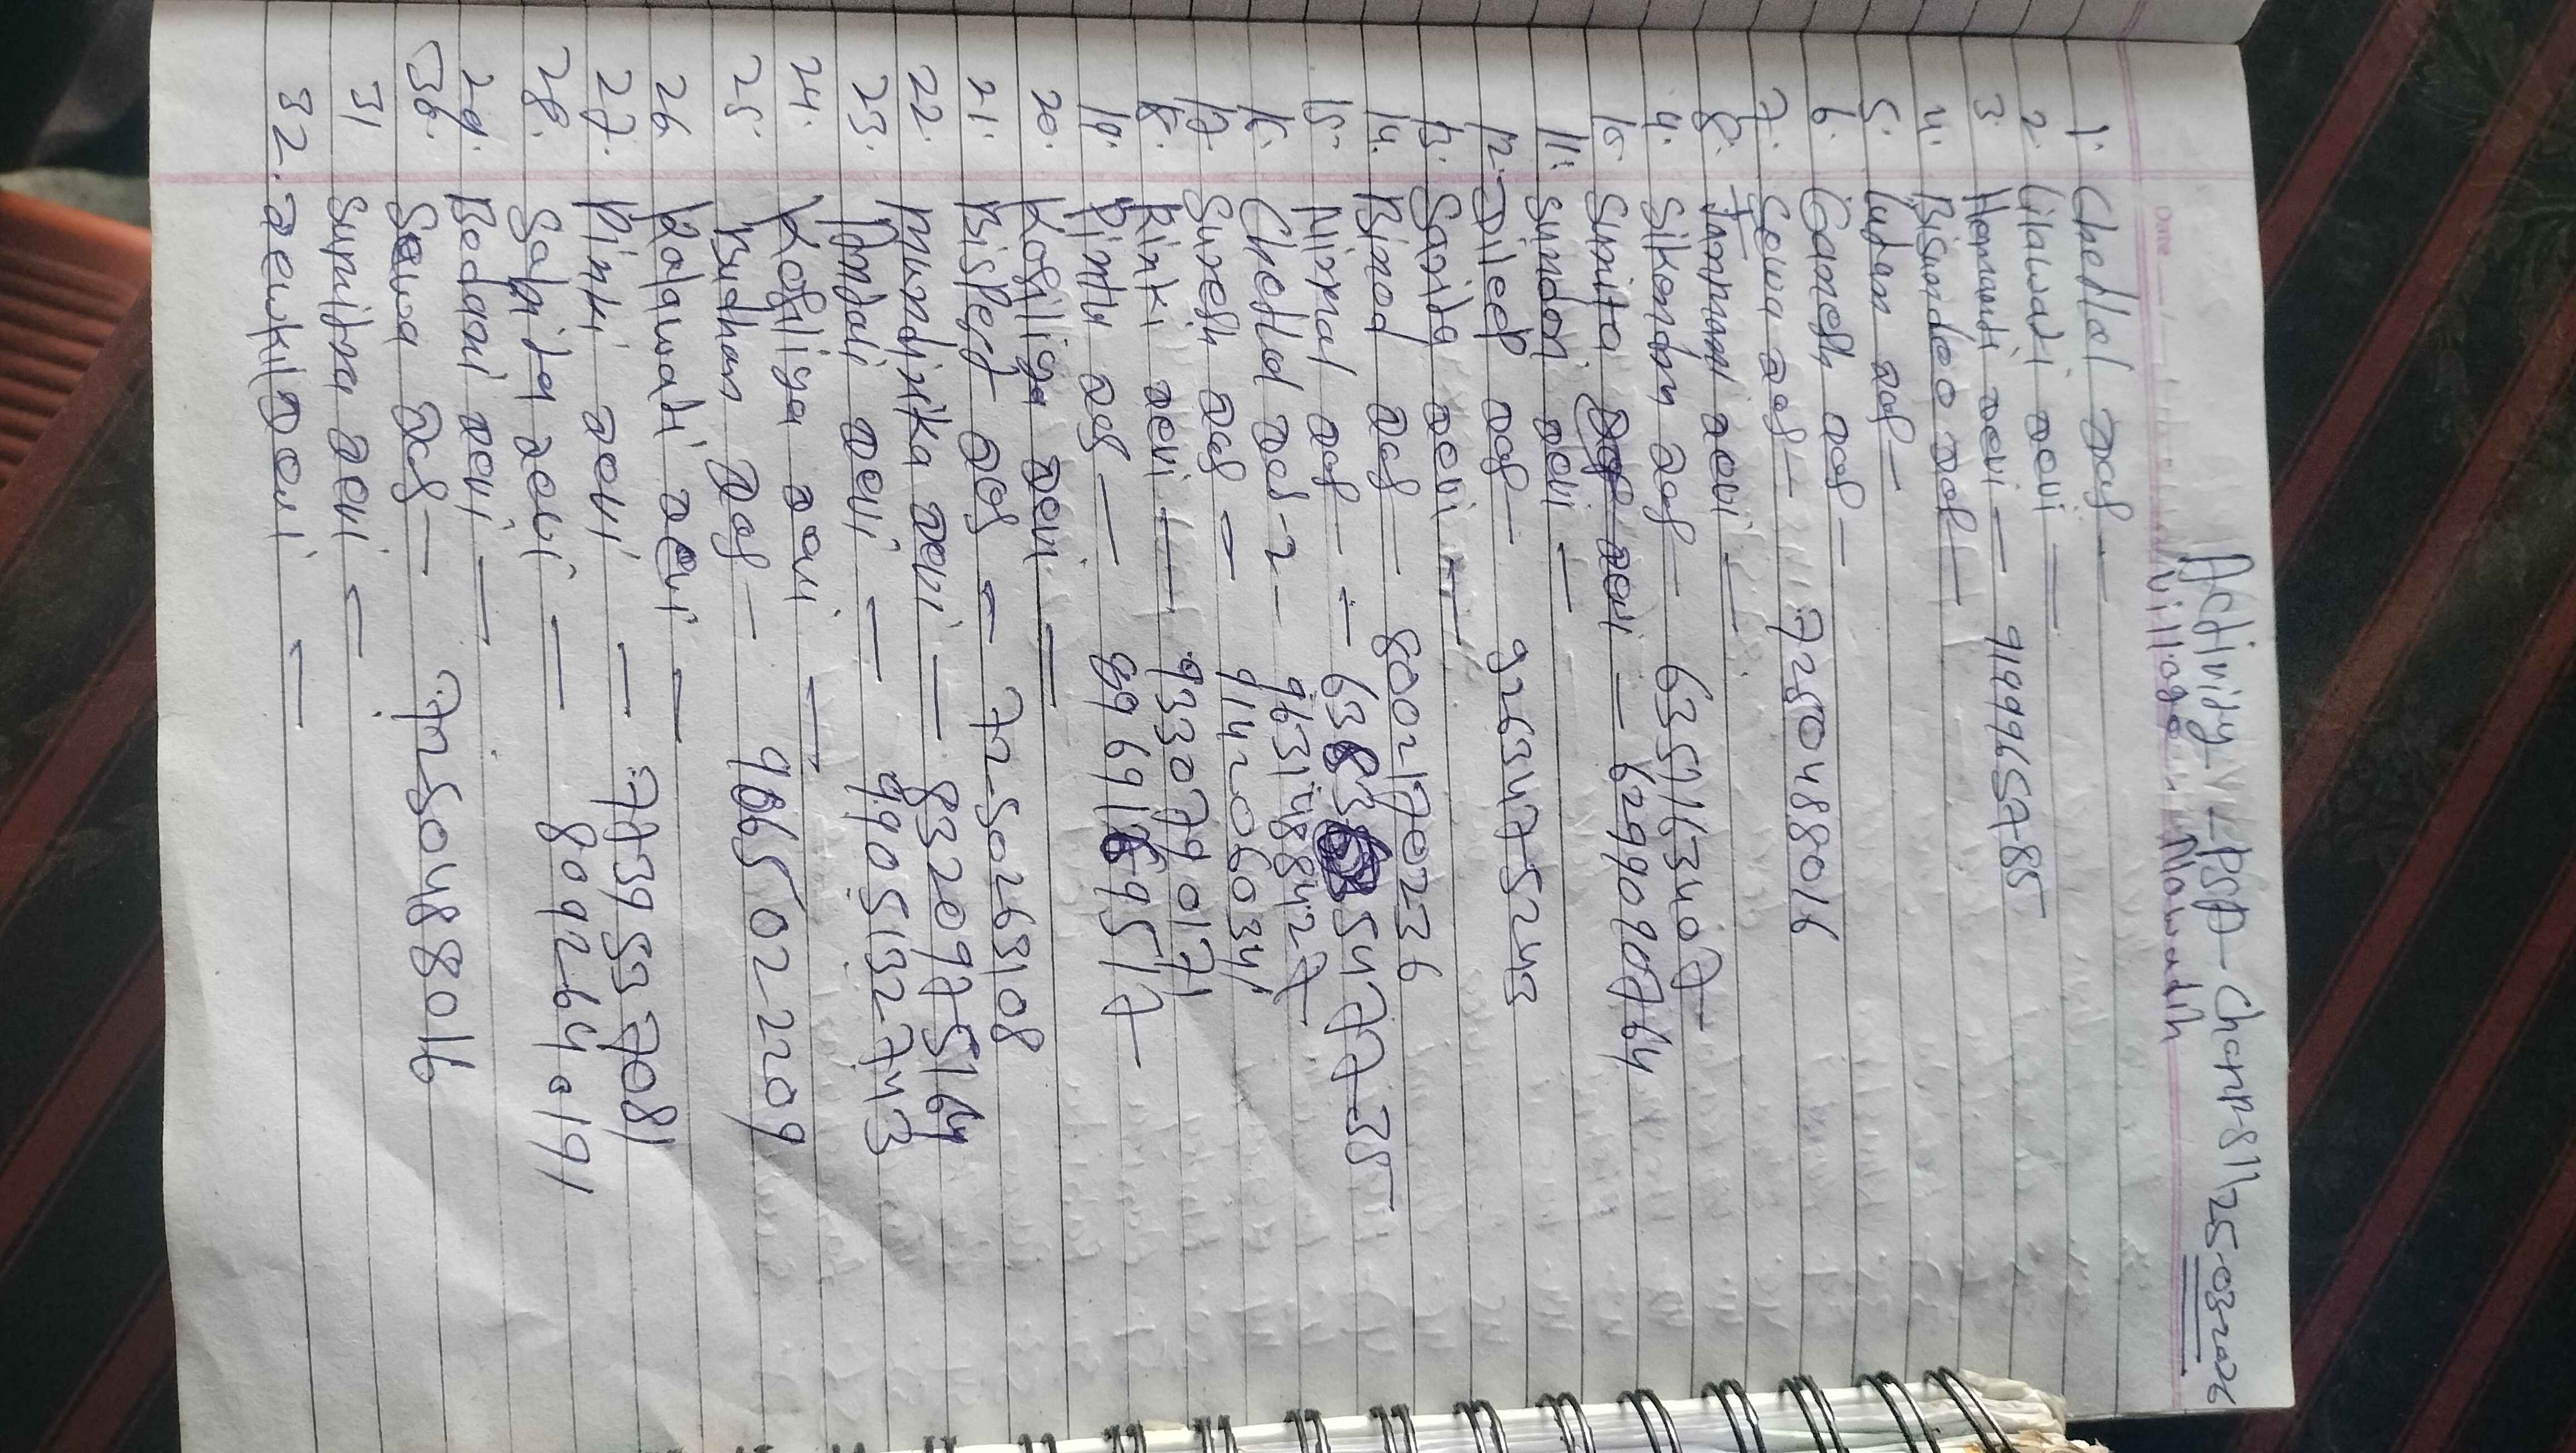 Activity VL-PSP-Charpa 8111 25.03.2026
Village:- Nawadih
1. Chedlal Das -
2. Lilawati Devi =
3. Hemanti Devi = 9199965785
4. Bisundeo Das -
5. Ludan Das -
6. Ganesh Das =
7. Sewa Das - 7250488016
8. Jhanpani Devi =
9. Sikendar Das - 6351163407
10. Sunita Devi - 6299090764
11. Sundari Devi =
12. Dileep Das - 9263475243
13. Sarita Devi =
14. Binod Das - 8002170236
15. Nirmal Das -
16. Chotlal Das-2 - 9631488427
17. Suresh Das = 9142060341
18. Rinki Devi - 9330790171
19. Pintu Das -
20. Kosiliya Devi =
21. Bisped Das = 7250263108
22. Mundrika Devi = 8320975164
23. Anjali Devi - 9905132743
24. Kosiliya Devi =
25. Budhan Das - 9065022209
26. Kalawati Devi -
27. Pinki Devi -
28. Sabita Devi = 8092640191
29. Bedani Devi =
30. Sewa Das = 7250488016
31. Sumitra Devi =
32. Dewki Devi =